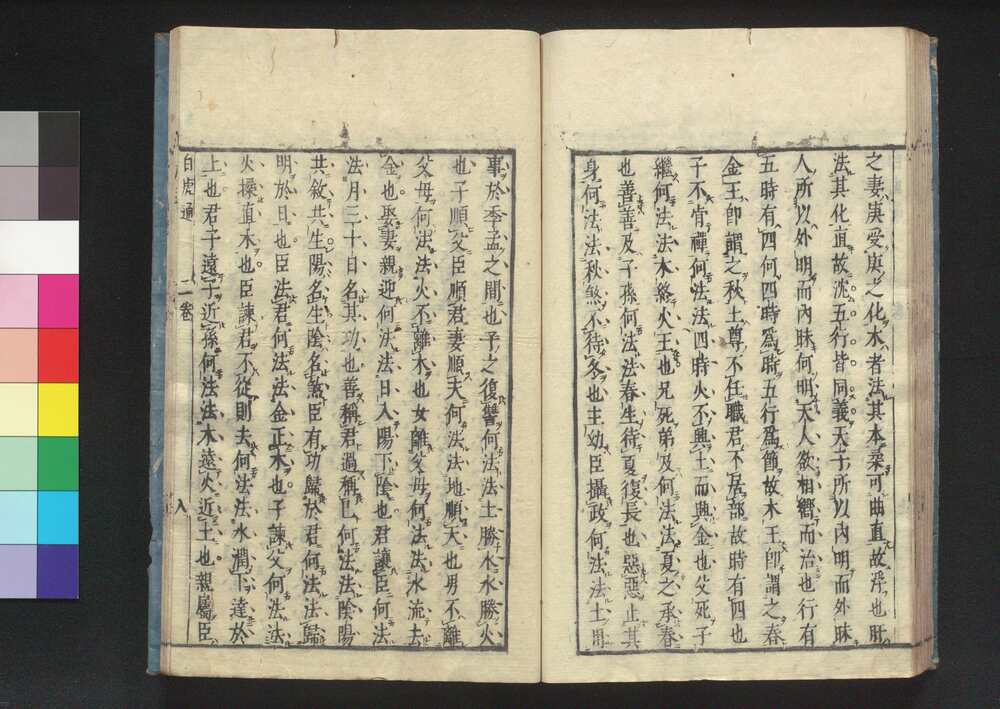 之妻庚受庚之化木者法其本柔可曲直故浮也肝
法其化直故沈五行皆同義天子所以內明而外昧
人所以外明而內昧何明天人欲相嚮而治也行有
五時有四何四時爲時五行爲節故木王即謂之春
金王即謂之秋土尊不任職君不居部故時有四也
子不肯禪何法法四時火不興土而興金也父死子
繼何法法木終火王也兄死弟及何法法夏之承春
也善善及子孫何法法春生待夏復長也惡惡止其
身何法法秋煞不待冬也主幼臣攝政何法法土用
事於季孟之間也子之復讐何法法土勝水水勝火
也子順父臣順君妻順夫何法法地順天也男不離
父母何法法火不離木也女離父母何法法水流去
金也娶妻親迎何法法日入陽下陰也君讓臣何法
法月三十日名其功也善稱君過稱己何法法陰陽
共敘共生陽名生陰名煞臣有功歸於君何法法歸
明於日也臣法君何法法金正木也子諫父何法法
火揉直木也臣諫君不從則去何法法水潤下達於
上也君子遠子近孫何法法木遠火近土也親屬臣
白虎通 二卷 八